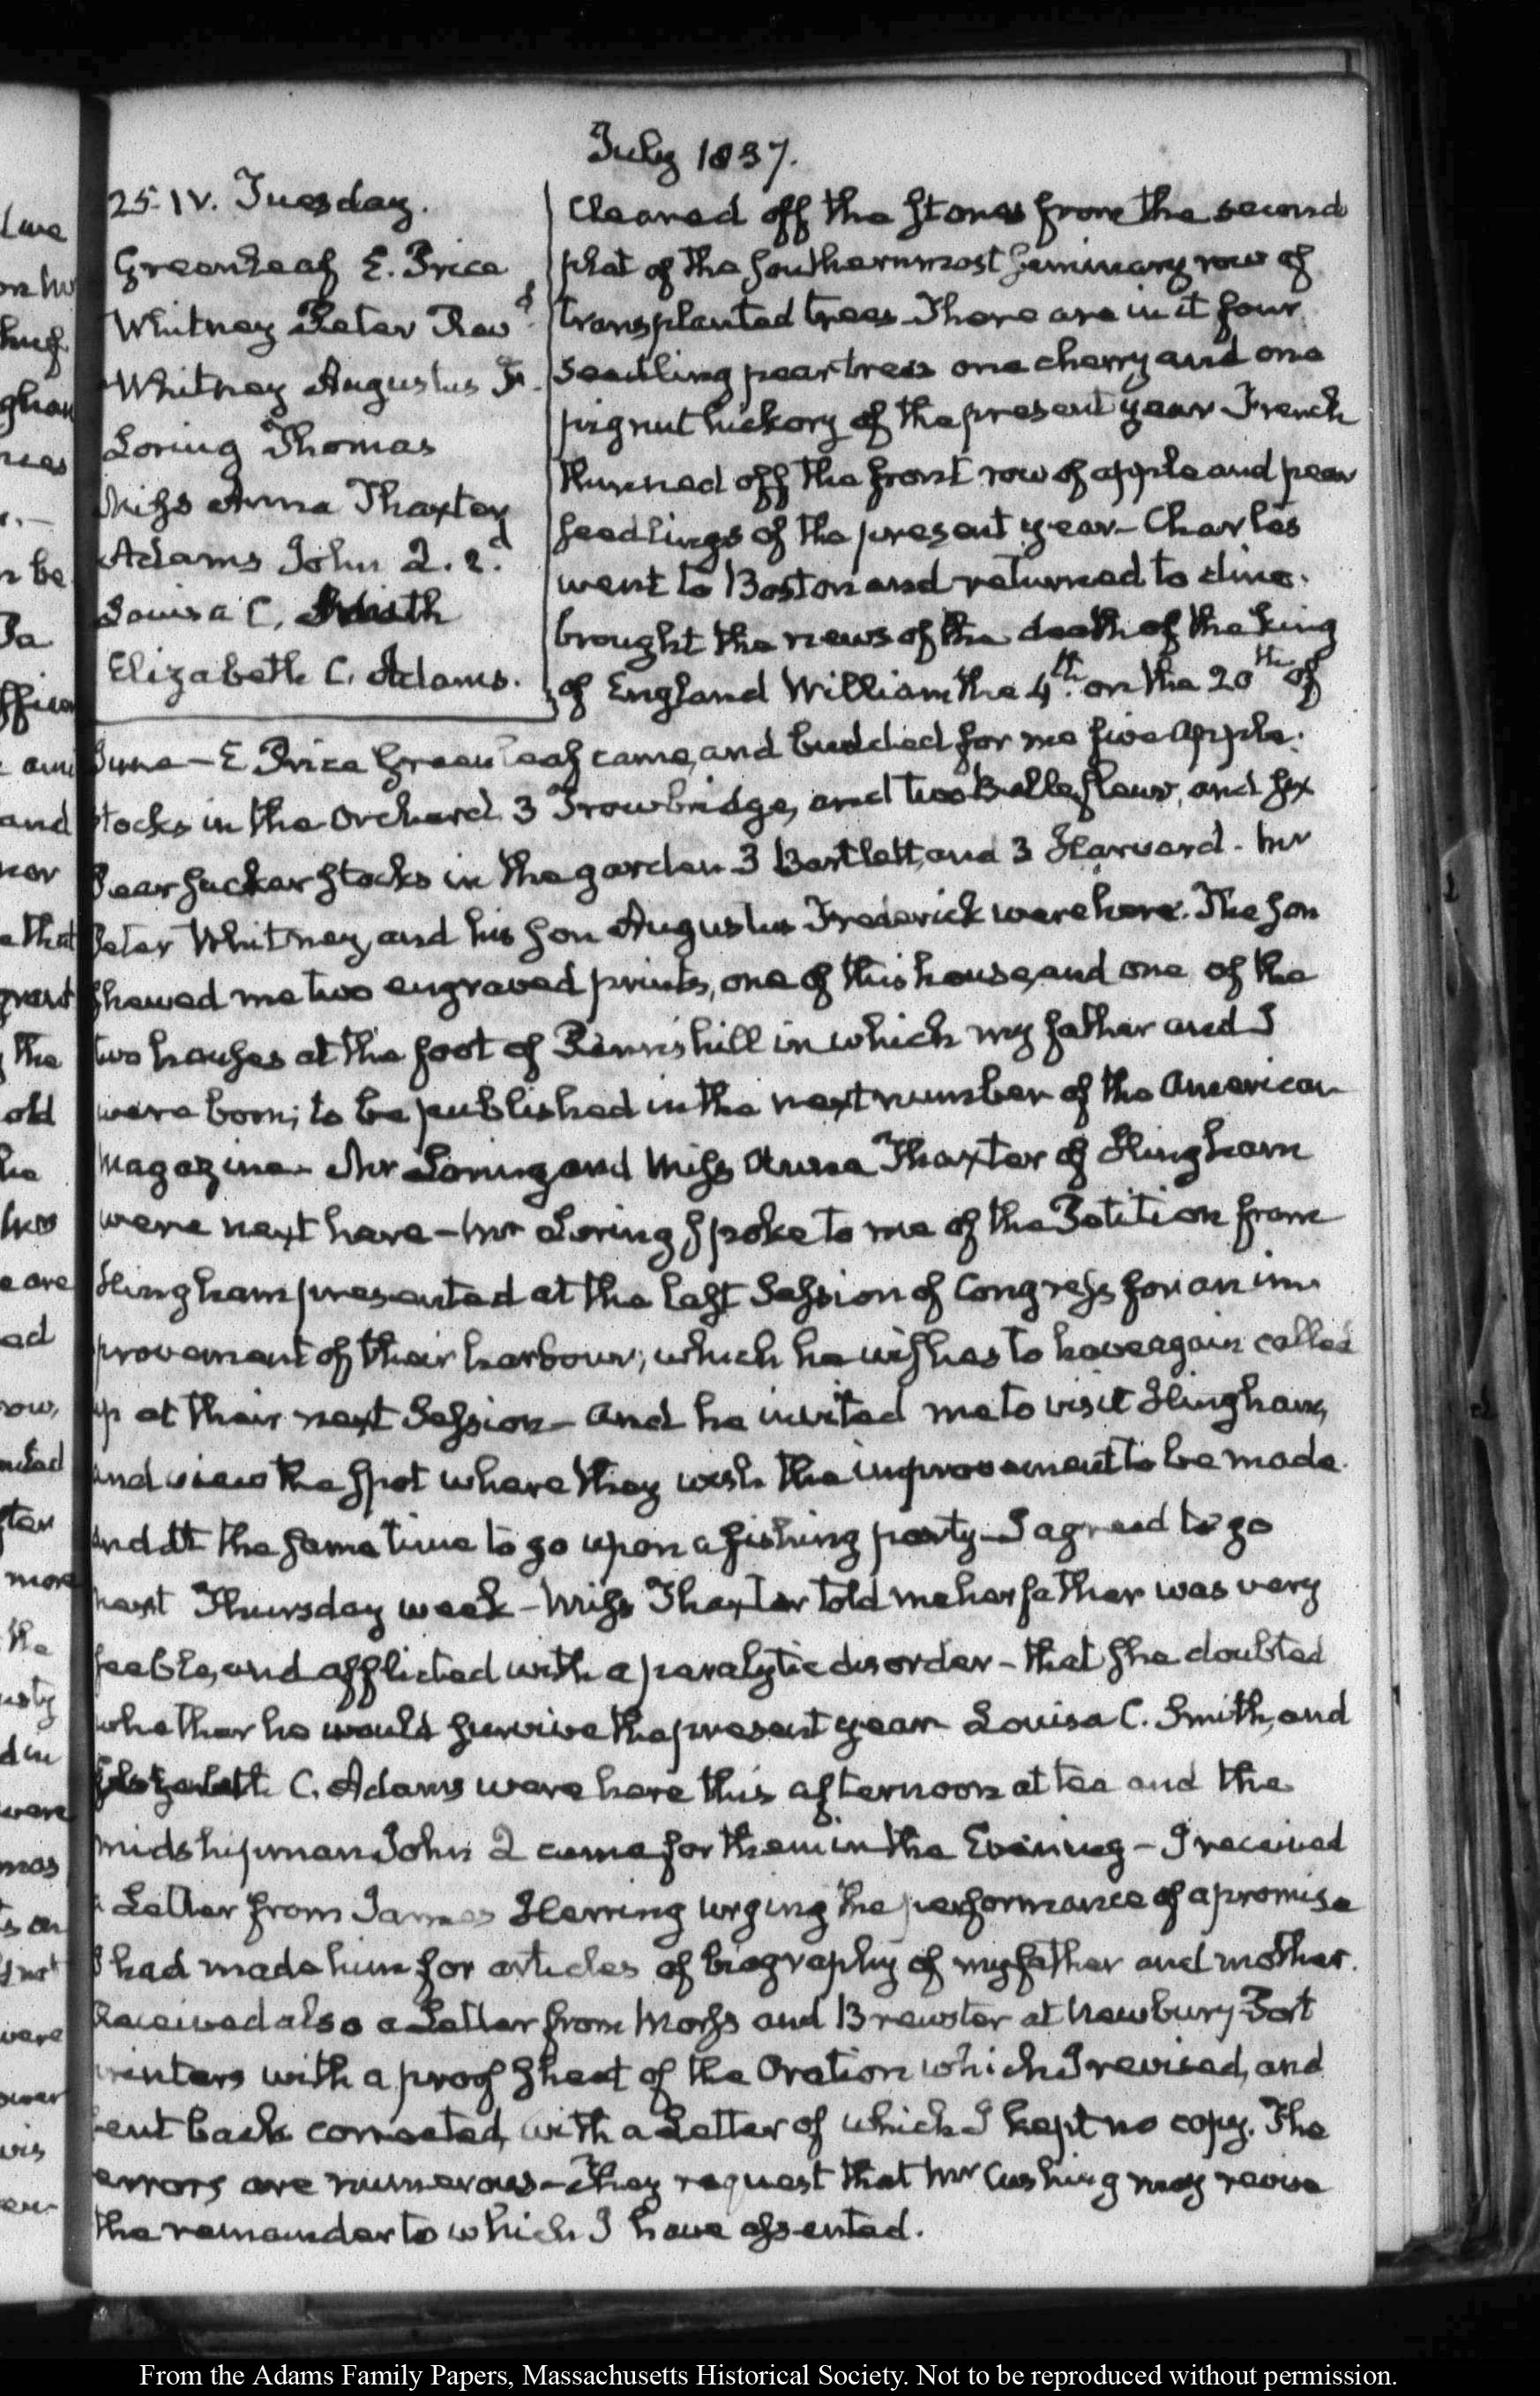 July 1837.
25. IV. Tuesday.
Greenleaf E. Price
Whitney Peter Revd.
Whitney Augustus F.
Loring Thomas
Miss Anna Thaxter
Adams John Q. 2d.
Louisa C. Smith
Elizabeth C. Adams.
Cleared off the stones from the second
plat of the southernmost seminary row of
transplanted trees. There are in it four
seedling pear trees one cherry and one
pignut hickory of the present year French
thinned off the front row of apple and pear
seedlings of the present year — Charles
went to Boston and returned to dine.
brought the news of the death of the King
of England William the 4th. on the 20th of
June — E Price Greenleaf came, and budded for me five apple
stocks in the orchard 3 Trowbridge, and two Belleflour, and six
Pear sucker stocks in the garden 3 Bartlett, and 3 Harvard. Mr
Peter Whitney, and his son Augustus Frederick were here. The son
shewed me two engraved prints, one of this house, and one of the
two houses at the foot of Penn's hill in which my father and I
were born; to be published in the next number of the American
Magazine — Mr Loring and Miss Anna Thaxter of Hingham
were next here — Mr Loring spoke to me of the Petition from
Hingham presented at the last Session of Congress for an im
provement of their harbour; which he wishes to have again called
up at their next Session — and he invited me to visit Hingham,
and view the spot where they wish the improvement to be made.
and at the same time to go upon a fishing party — I agreed to go
next Thursday week — Miss Thaxter told me her father was very
feeble, and afflicted with a paralytic disorder — that she doubted
whether he would survive the present year Louisa C. Smith, and
Elizabeth C. Adams were here this afternoon at tea and the
midshipman John Q came for them in the Evening — I received
a Letter from James Herring urging the performance of a promise
I had made him for articles of biography of my father and mother.
Received also a Letter from Morss and Brewster at Newbury-Port
printers with a proof sheet of the Oration which I revised, and
sent back corrected, with a Letter of which I kept no copy. The
errors are numerous — They request that Mr Cushing may revise
the remainder to which I have assented.
From the Adams Family Papers, Massachusetts Historical Society. Not to be reproduced without permission.